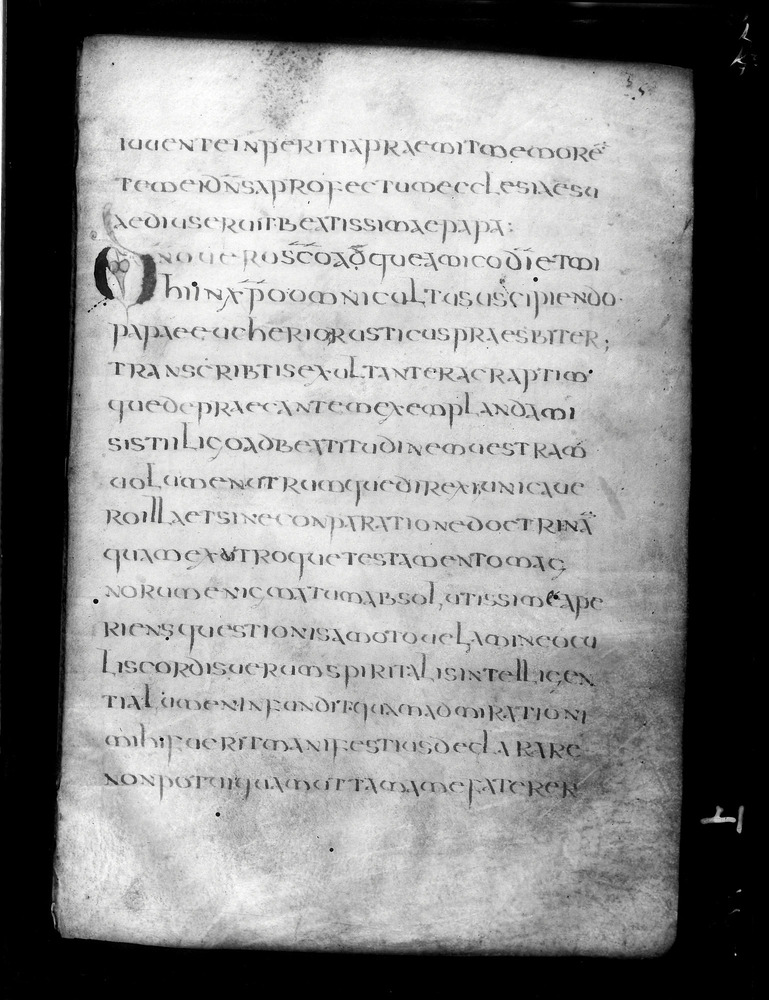 iuuenteinperitiapraemitmemorē
temeidn̄saprofectumecclesiaesu
aediuseruit·beatissimaepapa:
Dnoueroscōadq̄ueamicodīetmi
hiinxp̄oomnicultususcipiendo·
papaeeucheriorusticuspraesbiter;
transcribtisexultanteracraptim·
quedepraecantemexemplandami
sistiiligoadbeatitudinemuestram̄
uolumenutrumquedirexiunicaue
roillaetsineconparationedoctrinā
quamexutroquetestamentomag
norumenigmatumabsolutissimeape
riensquestionisamotouelamineocu
liscordisuerumspiritalisintelligen
tialumeninfundit·quamadmirationi
mihifueritmanifestiusdeclarare
nonpotuiquamuttamamefaterer